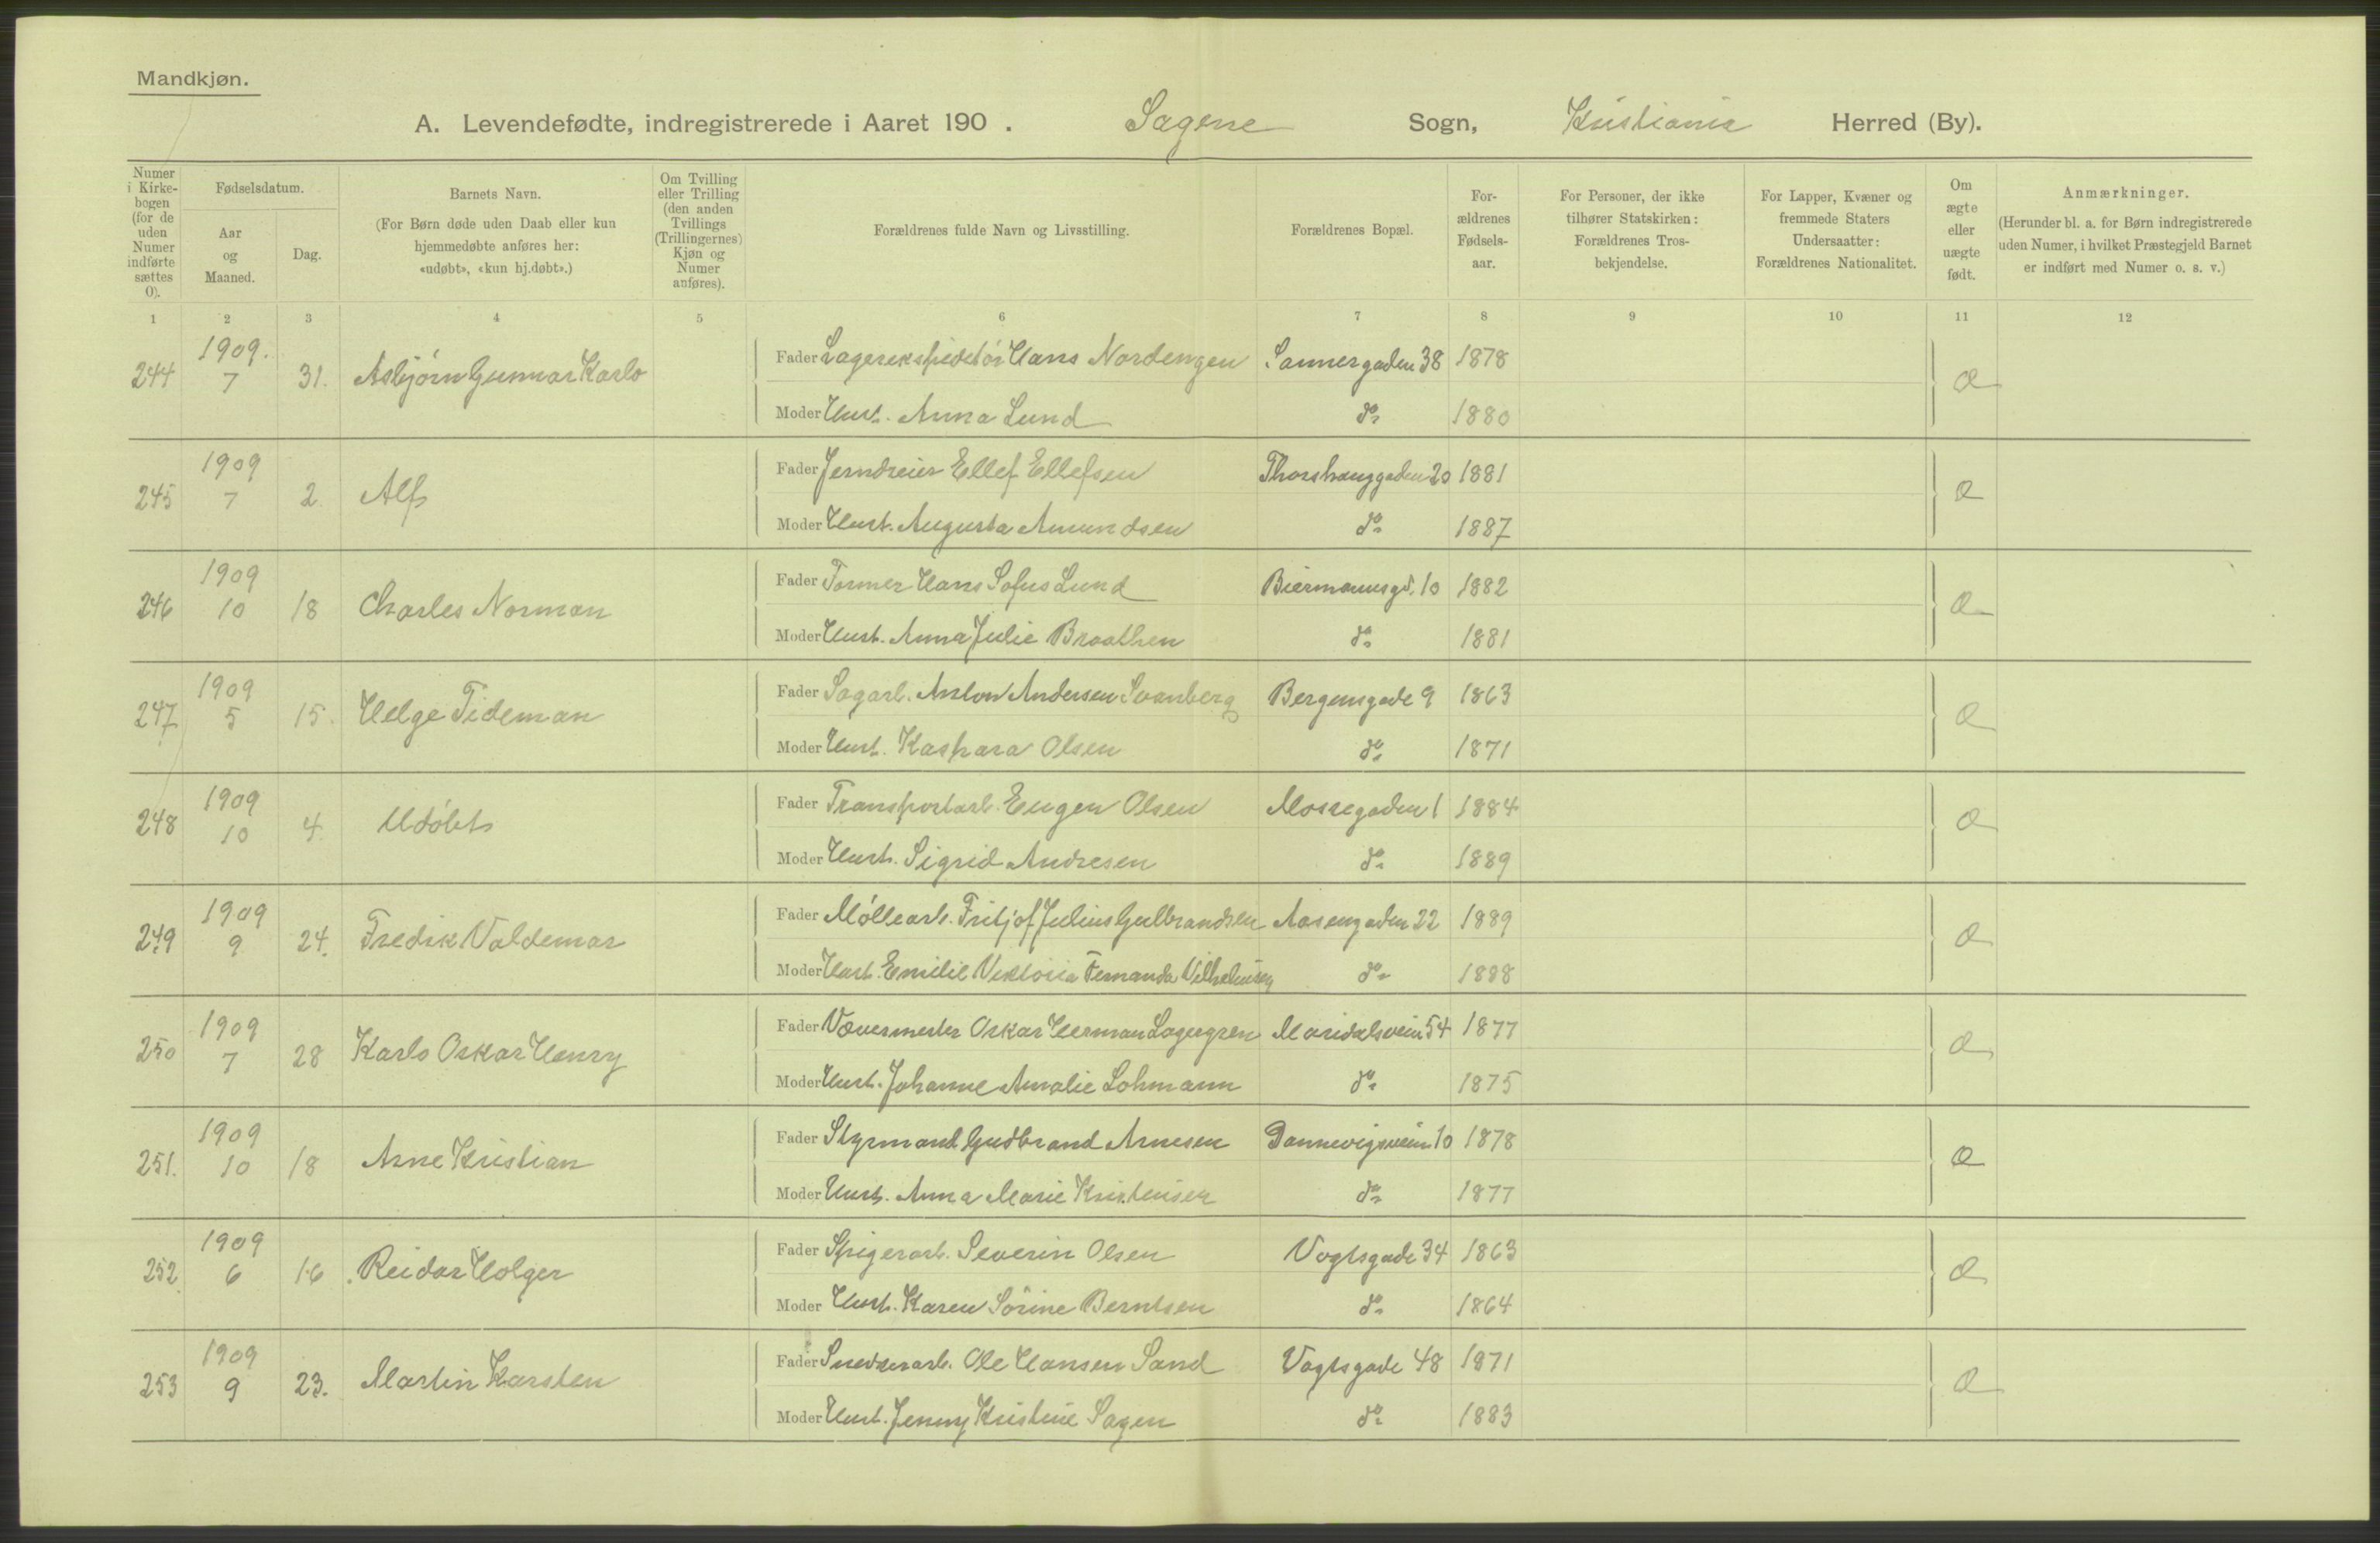 Mandkjøn.
A. Levendefødte, indregistrerede i Aaret 190 . Sagene Sogn, Kristiania Herred (By).
Numer i Kirkebogen (for de uden Numer indførte sættes 0).
Fødselsdatum.
Aar og Maaned.
Dag.
Barnets Navn.
(For Børn døde uden Daab eller kun
hjemmedøbte anføres her:
«udøbt», «kun hj.døbt».)
Om Tvilling eller Trilling (den anden Tvillings (Trillingernes) Kjøn og Numer anføres).
Forældrenes fulde Navn og Livsstilling.
Forældrenes Bopæl.
Forældrenes Fødselsaar.
For Personer, der ikke tilhører Statskirken: Forældrenes Trosbekjendelse.
For Lapper, Kvæner og fremmede Staters Undersaatter: Forældrenes Nationalitet.
Om ægte eller uægte født.
Anmærkninger.
(Herunder bl. a. for Børn indregistrerede
uden Numer, i hvilket Præstegjeld Barnet
er indført med Numer o. s. v.)
1 2 3 4 5 6 7 8 9 10 11 12
244 1909. 7 31. Asbjørn Gunnar Karlo
Fader Lagerekspeditör Hans Nordengen Sannergaden 38 1878
Moder Hust. Anna Lund do 1880
245 1909 7 2 Alf
Fader Jerndreier Ellef Ellefsen Thorshauggaden 20 1881
Moder Hust. Augusta Amundsen do 1887
246 1909 10 18 Charles Norman
Fader Former Hans Sofus Lund Biermannsgd. 10 1882
Moder Hust. Anna Julie Braathen do 1881
247 1909 5 15. Helge Tideman
Fader Sagarb. Anton Andersen Svanberg Bergensgade 9 1863
Moder Hust. Kaspara Olsen do 1871
248 1909 10 4. Udöbt
Fader Transportarb. Eugen Olsen Mossegaden 1 1884
Moder Hust. Sigrid Andresen do 1889
249 1909 9 24. Fredik Valdemar
Fader Möllearb. Fritjof Julius Gulbrandsen Aasengaden 22 1889
Moder Hust. Emilie Viktoria Fernanda Vilhelmsen do 1888
250 1909 7 28 Karlo Oskar Henry
Fader Vævermester Oskar Herman Lagergren Maridalsvein 54 1877
Moder Hust. Johanne Amalie Lohmann do 1875
251. 1909 10 18 Arne Kristian
Fader Styrmand Gudbrand Arnesen Dannevigsvein 10 1878
Moder Hust. Anna Marie Kristensen do 1877
252 1909 6 16 Reidar Holger
Fader Spigerarb. Severin Olsen Vogtsgade 34 1863
Moder Hust. Karen Sörine Berntsen do 1864
253 1909 9 23. Martin Karsten
Fader Snedkerarb. Ole Hansen Sand Vogtsgade 48 1871
Moder Hust. Jenny Kristine Sagen do 1883